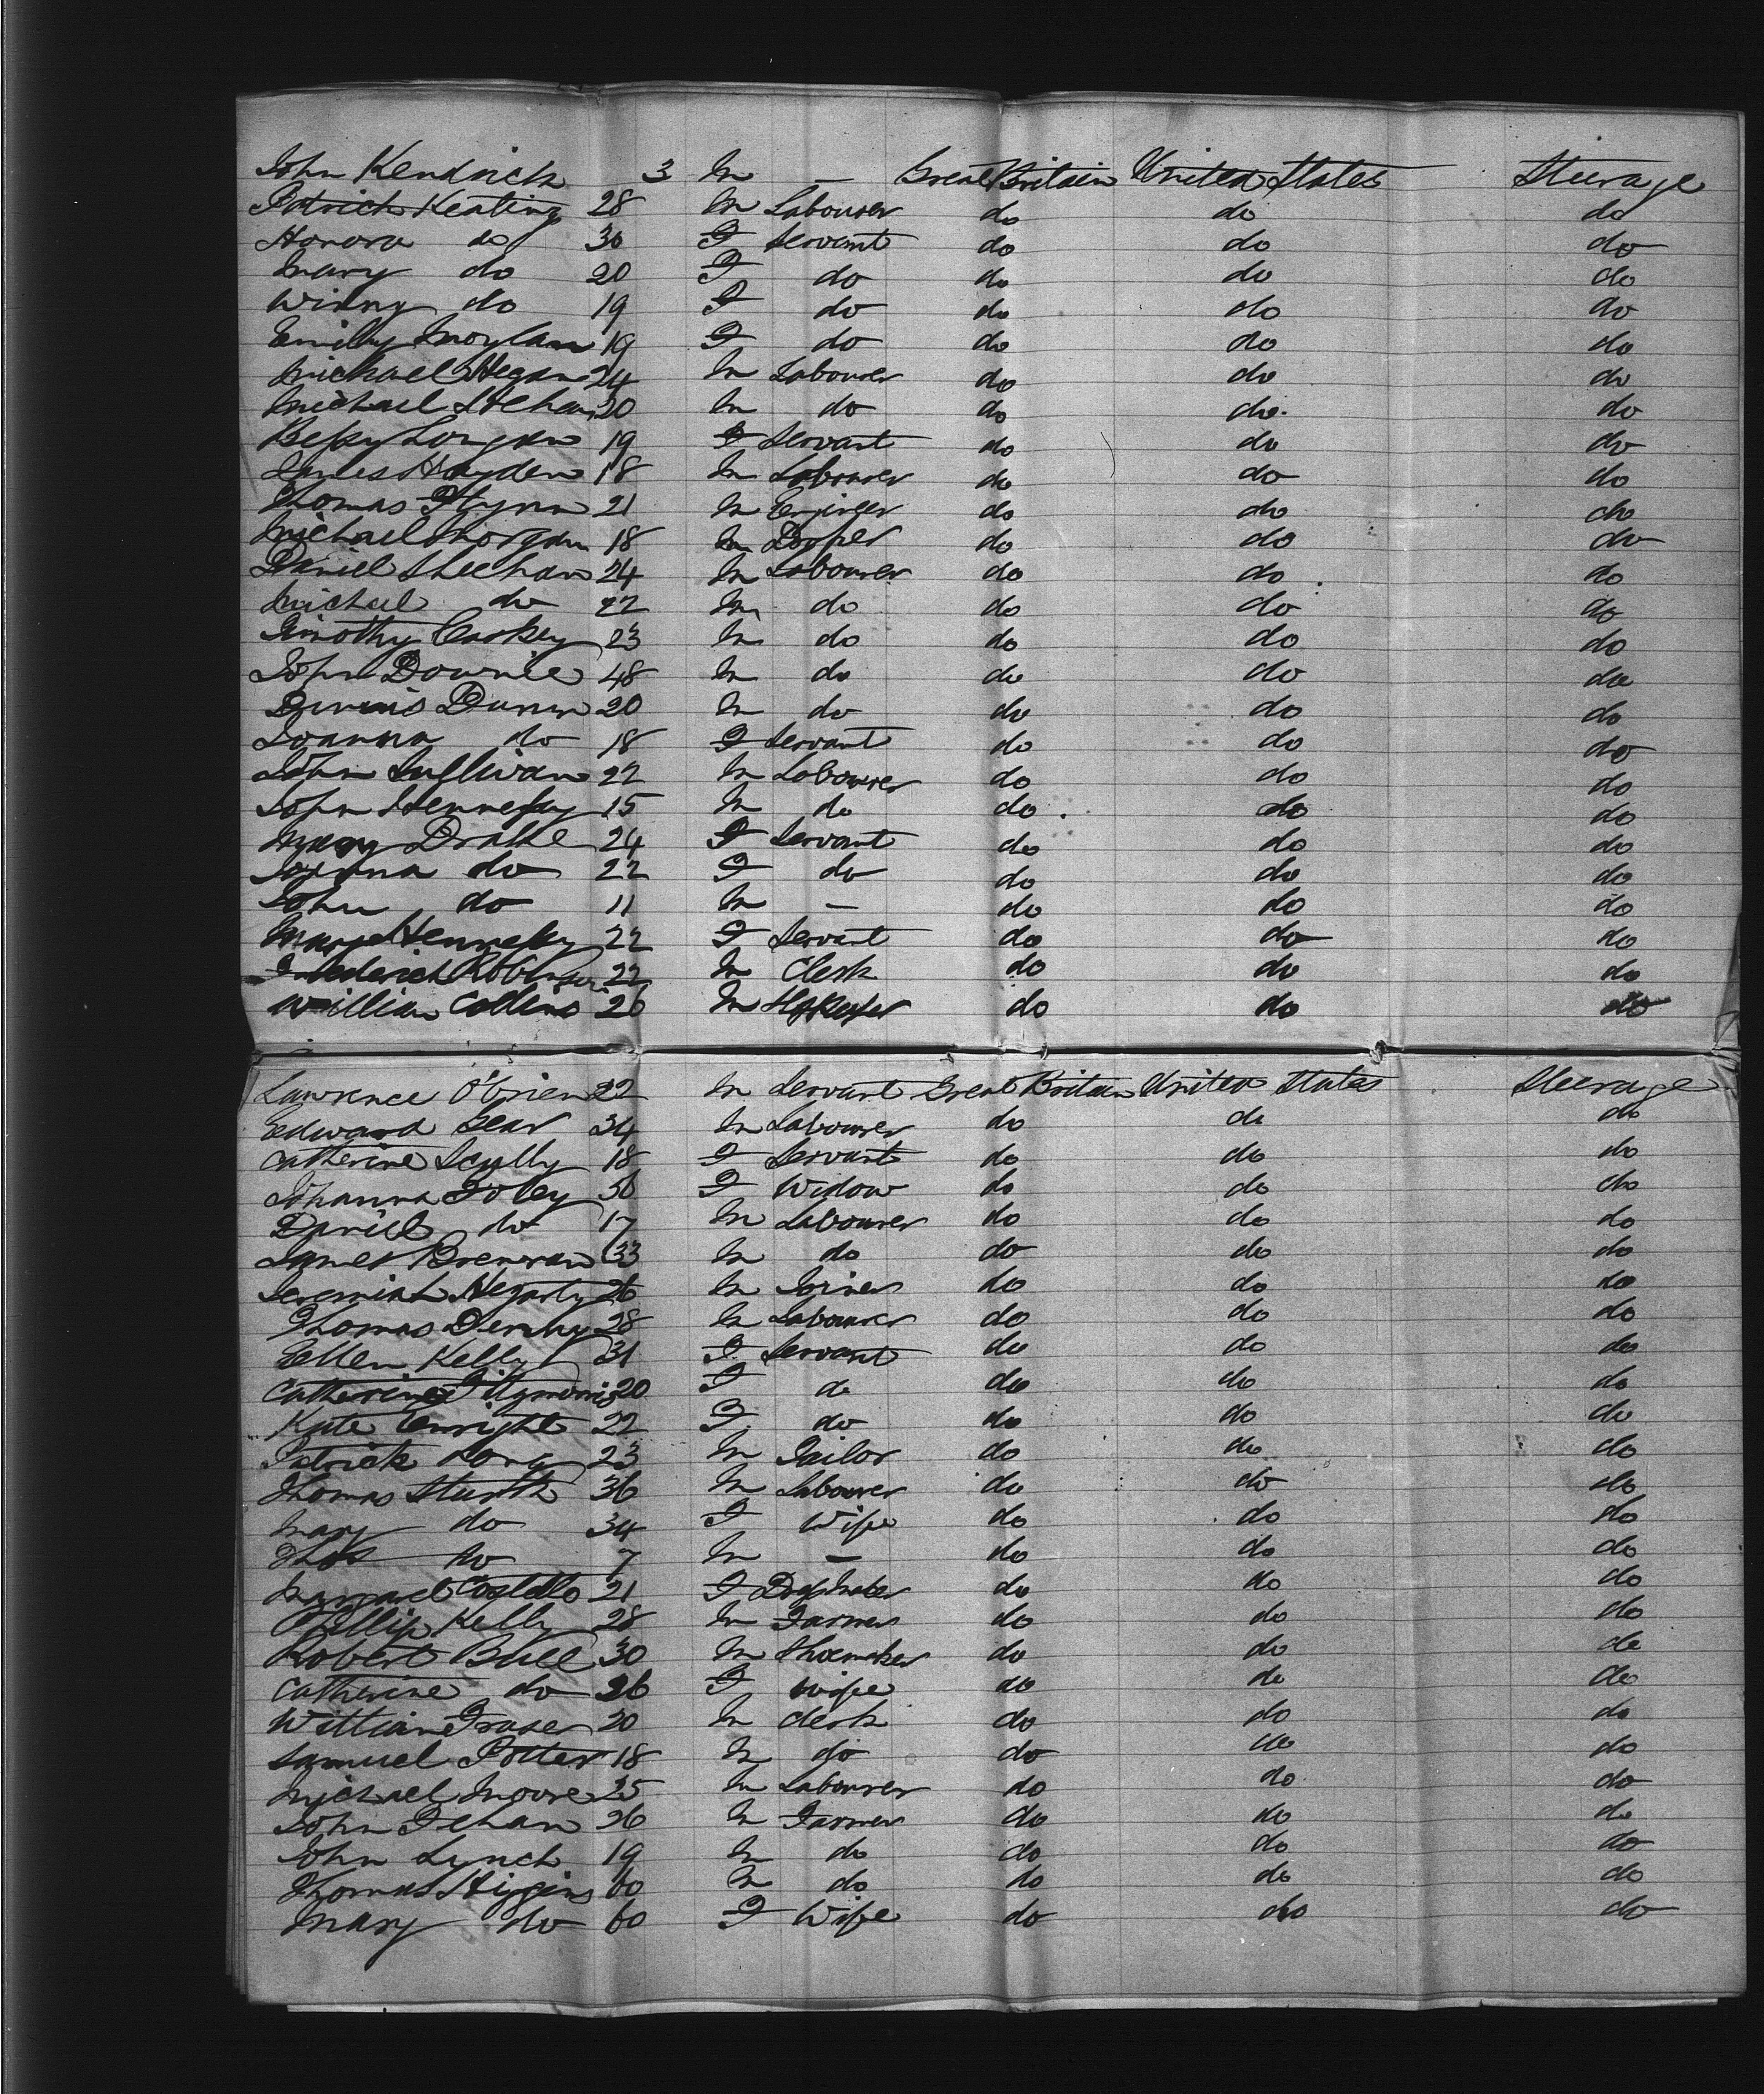 John Kendrick 3 M — Great Britain United States Steerage
Patrick Keating 28 M Labourer do do do
Honora do 30 F Servant do do do
Mary do 20 F do do do do
Winny do 19 F do do do do
Emily Moylan 19 F do do do do
Michael Hegan 24 M Labourer do do do
Michael 20 M do do do do
Bessy 19 F Servant do do do
James Hayden 18 M Labourer do do do
Thomas Flynn 21 M do do do
Michael Morgan 18 M do do do
Daniel Sheehan 24 M Labourer do do do
Michael do 22 M do do do do
Timothy 23 M do do do do
John Downie 48 M do do do do
Dennis Dunn 20 M do do do do
Joanna do 18 F Servant do do do
John Sullivan 22 M Labourer do do do
John Hennessy 15 M do do do do
Mary Drake 24 F Servant do do do
do 22 F do do do do
John do 11 M — do do do
Hennessy 22 F Servant do do do
Robinson 22 M Clerk do do do
William Collins 26 M do do do
Lawrence O'Brien 22 M Servant Great Britain United States Steerage
Edward 34 M Labourer do do do
Catherine Scully 18 F Servant do do do
Johanna Foley 50 F Widow do do do
Daniel do 17 M Labourer do do do
James Brennan 33 M do do do do
Jeremiah Hegarty 26 M Joiner do do do
Thomas 28 M Labourer do do do
Ellen Kelly 31 F Servant do do do
Catherine 20 F do do do do
Kate Enright 22 F do do do do
Patrick Long 23 M Tailor do do do
Thomas 36 M Labourer do do do
Mary do 34 F Wife do do do
Thos do 7 M — do do do
Costello 21 F do do do
Phillip Kelly 28 M Farmer do do do
Robert Bull 30 M Shoemaker do do do
Catherine do 26 F Wife do do do
William Fraser 20 M Clerk do do do
Samuel Potter 18 M do do do do
Michael Moore 25 M Labourer do do do
John 26 M Farmer do do do
John Lynch 19 M do do do do
Thomas Higgins 60 M do do do do
Mary do 60 F Wife do do do